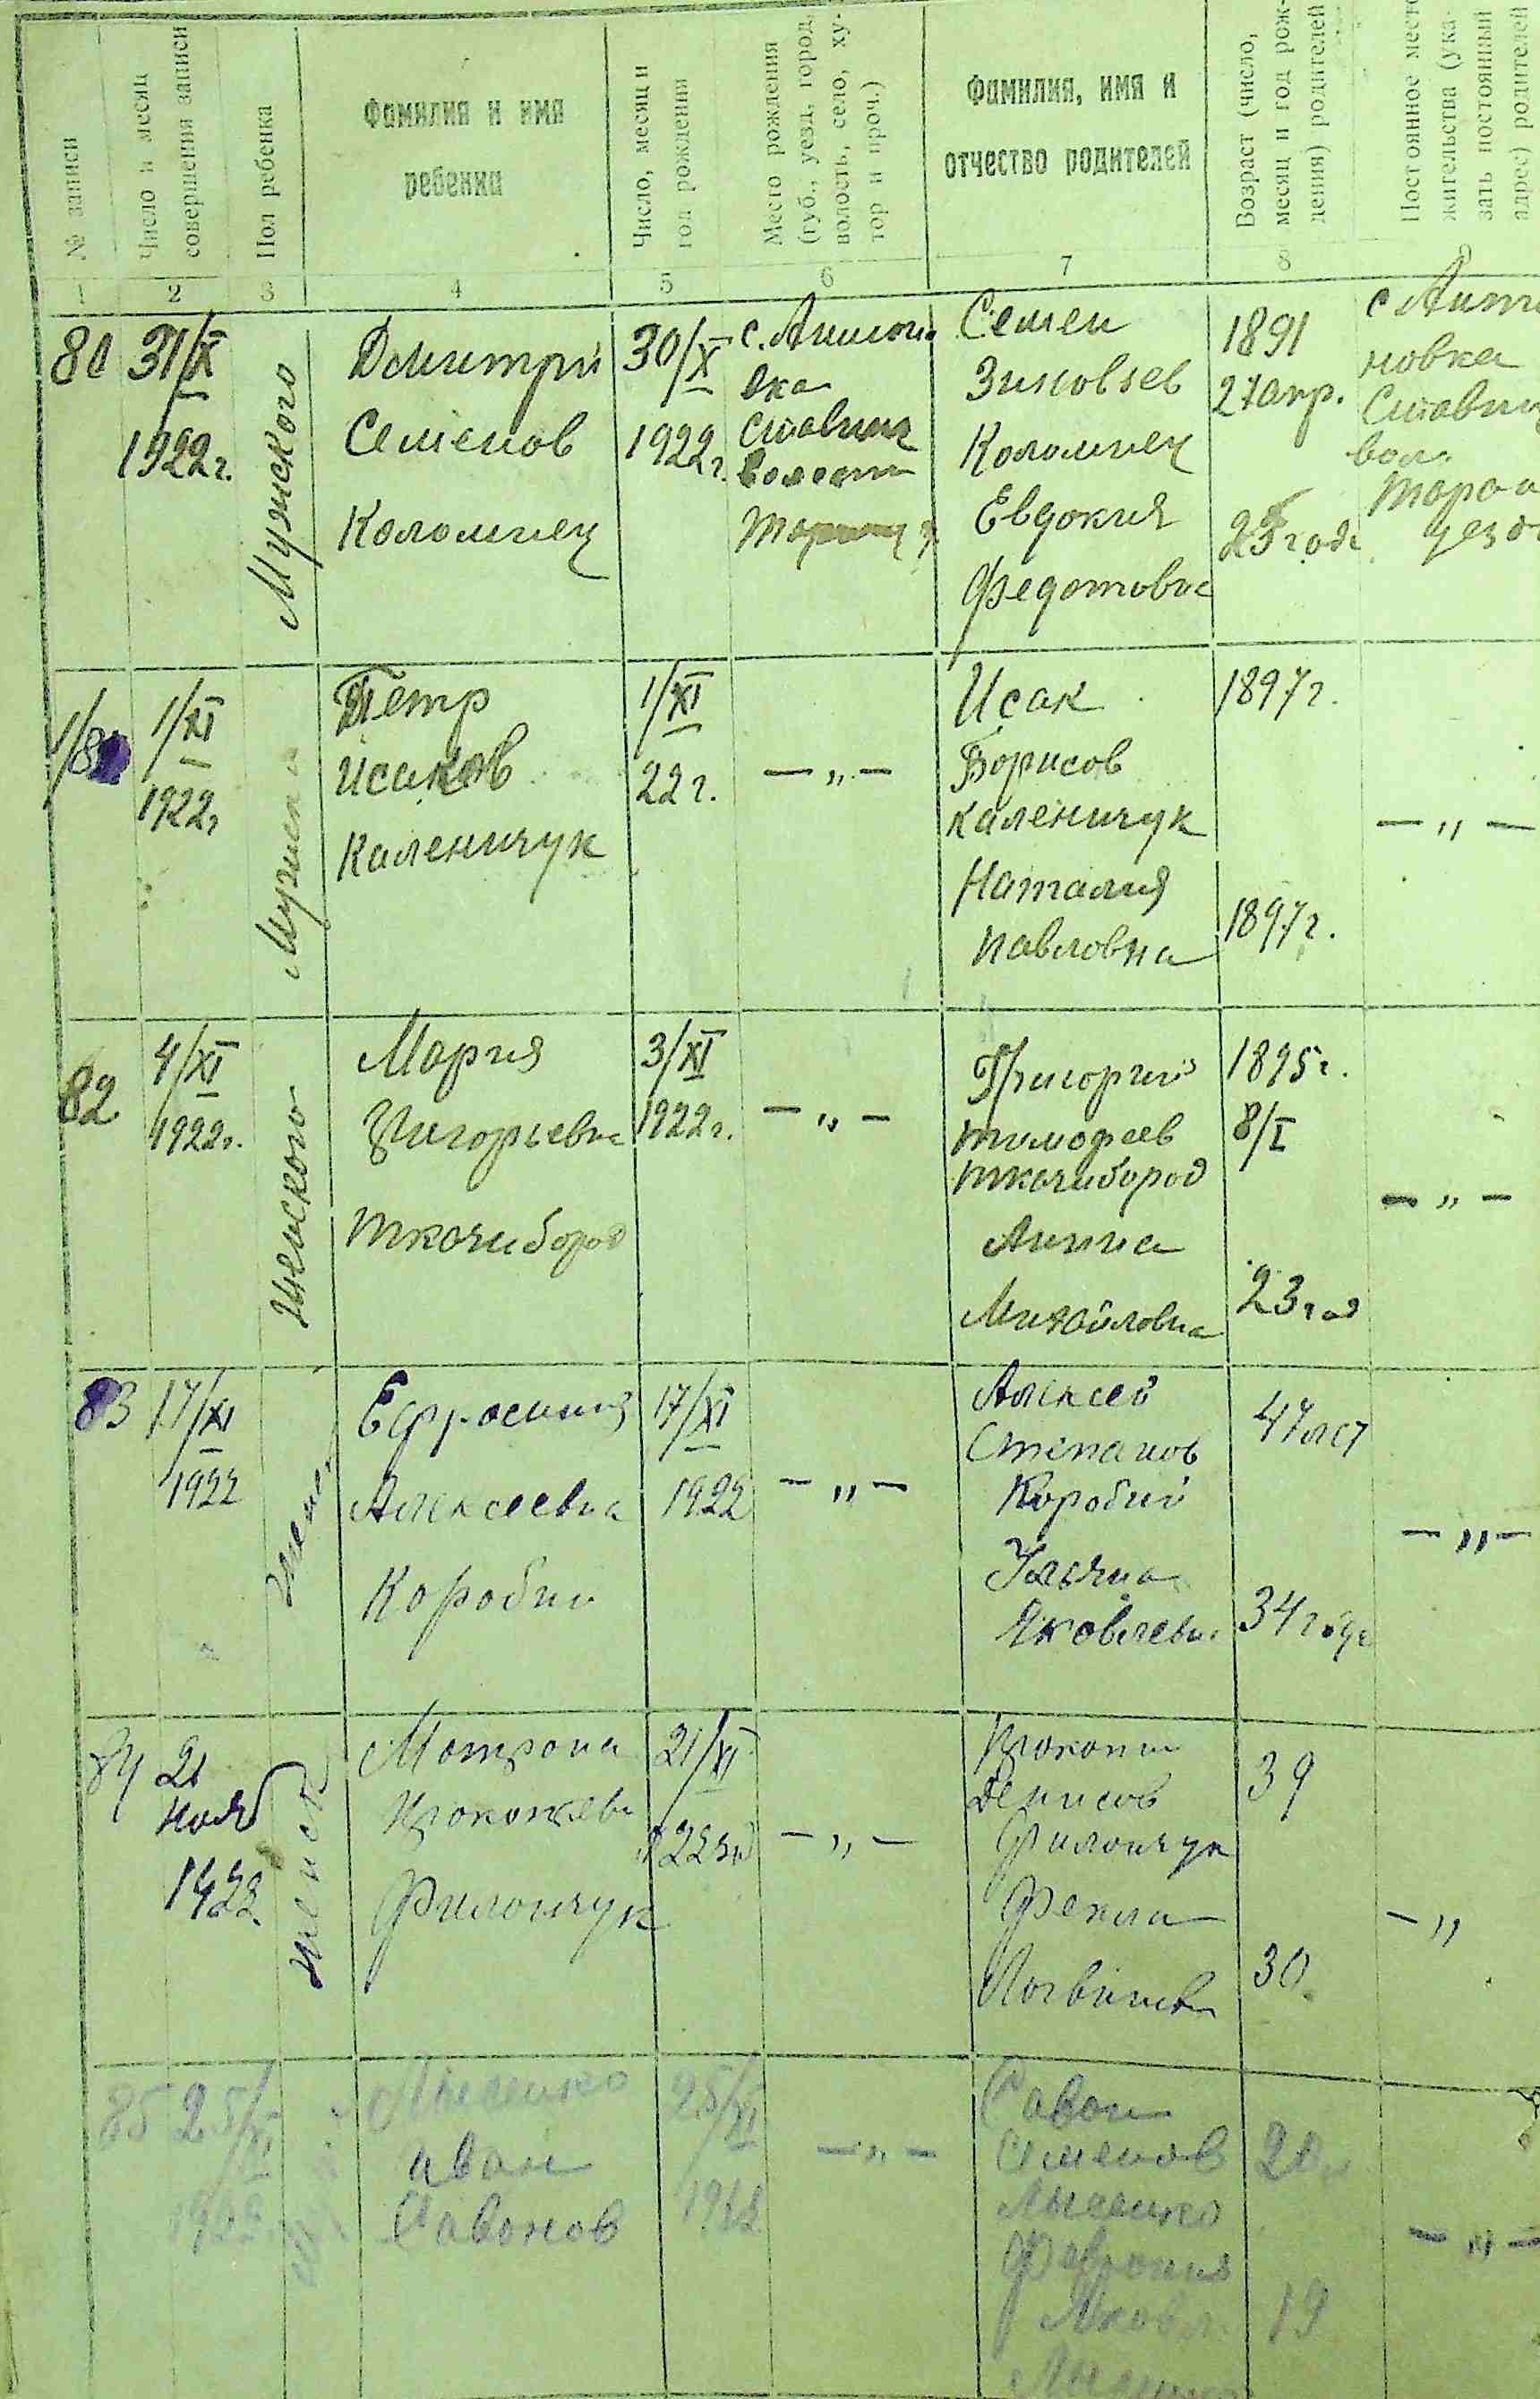 № записи
Число и месяц
совершения записи
Пол ребенка
Фамилия и имя
ребенка
Число, месяц и
год рождения
Место рождения
(губ., уезд, город,
волость, село, ху-
тор и проч.)
Фамилия, имя и
отчество родителей
Возраст (число,
месяц и год рож-
дения) родителей
Постоянное место
жительства (ука-
зать постоянный
адрес) родителей
1 2 3 4 5 6 7 8 9
80
31/X
1922г.
Мужского
Дмитрий
Семенов
Коломиец
30/X
1922г.
с.
вка
Ставищ
волости
Семен
Зиновьев
Коломиец
Евдокия
Федотовна
1891
27 апр.
25 год
с
новка
Ставищ
вол.
уезд
1/81
1/XI
1922г
Петр
Исаков
Каленичук
1/XI
22 г.
— „ —
Исак
Борисов
Каленичук
Наталия
Павловна
1897г.
1897г.
— „ —
82
4/XI
1922г.
Женского
Мария
Григорьевна
Ткачибород
3/XI
1922г.
— „ —
Григорий
Тимофеев
Ткачибород
Анна
Михайловна
1895г.
8/I
23 год
— „ —
83
17/XI
1922
Женс
Ефросиния
Алексеевна
Коробий
17/XI
1922
— „ —
Алексей
Степанов
Коробий
Ульяна
Яковлевн
47 лет
34 года
— „ —
84
21
Нояб
1922
Женск
Матрона
Прокопьев
Филончук
21/XI
— „ —
Прокопий
Денисов
Филончук
Фекла
Логвинов
39
30
— „
85
25/XI
1922
Лысенко
Иван
Савонов
25/XI
1922
— „ —
Савон
Семенов
Лысенко
Феврония
Яковл.
20
19
— „ —